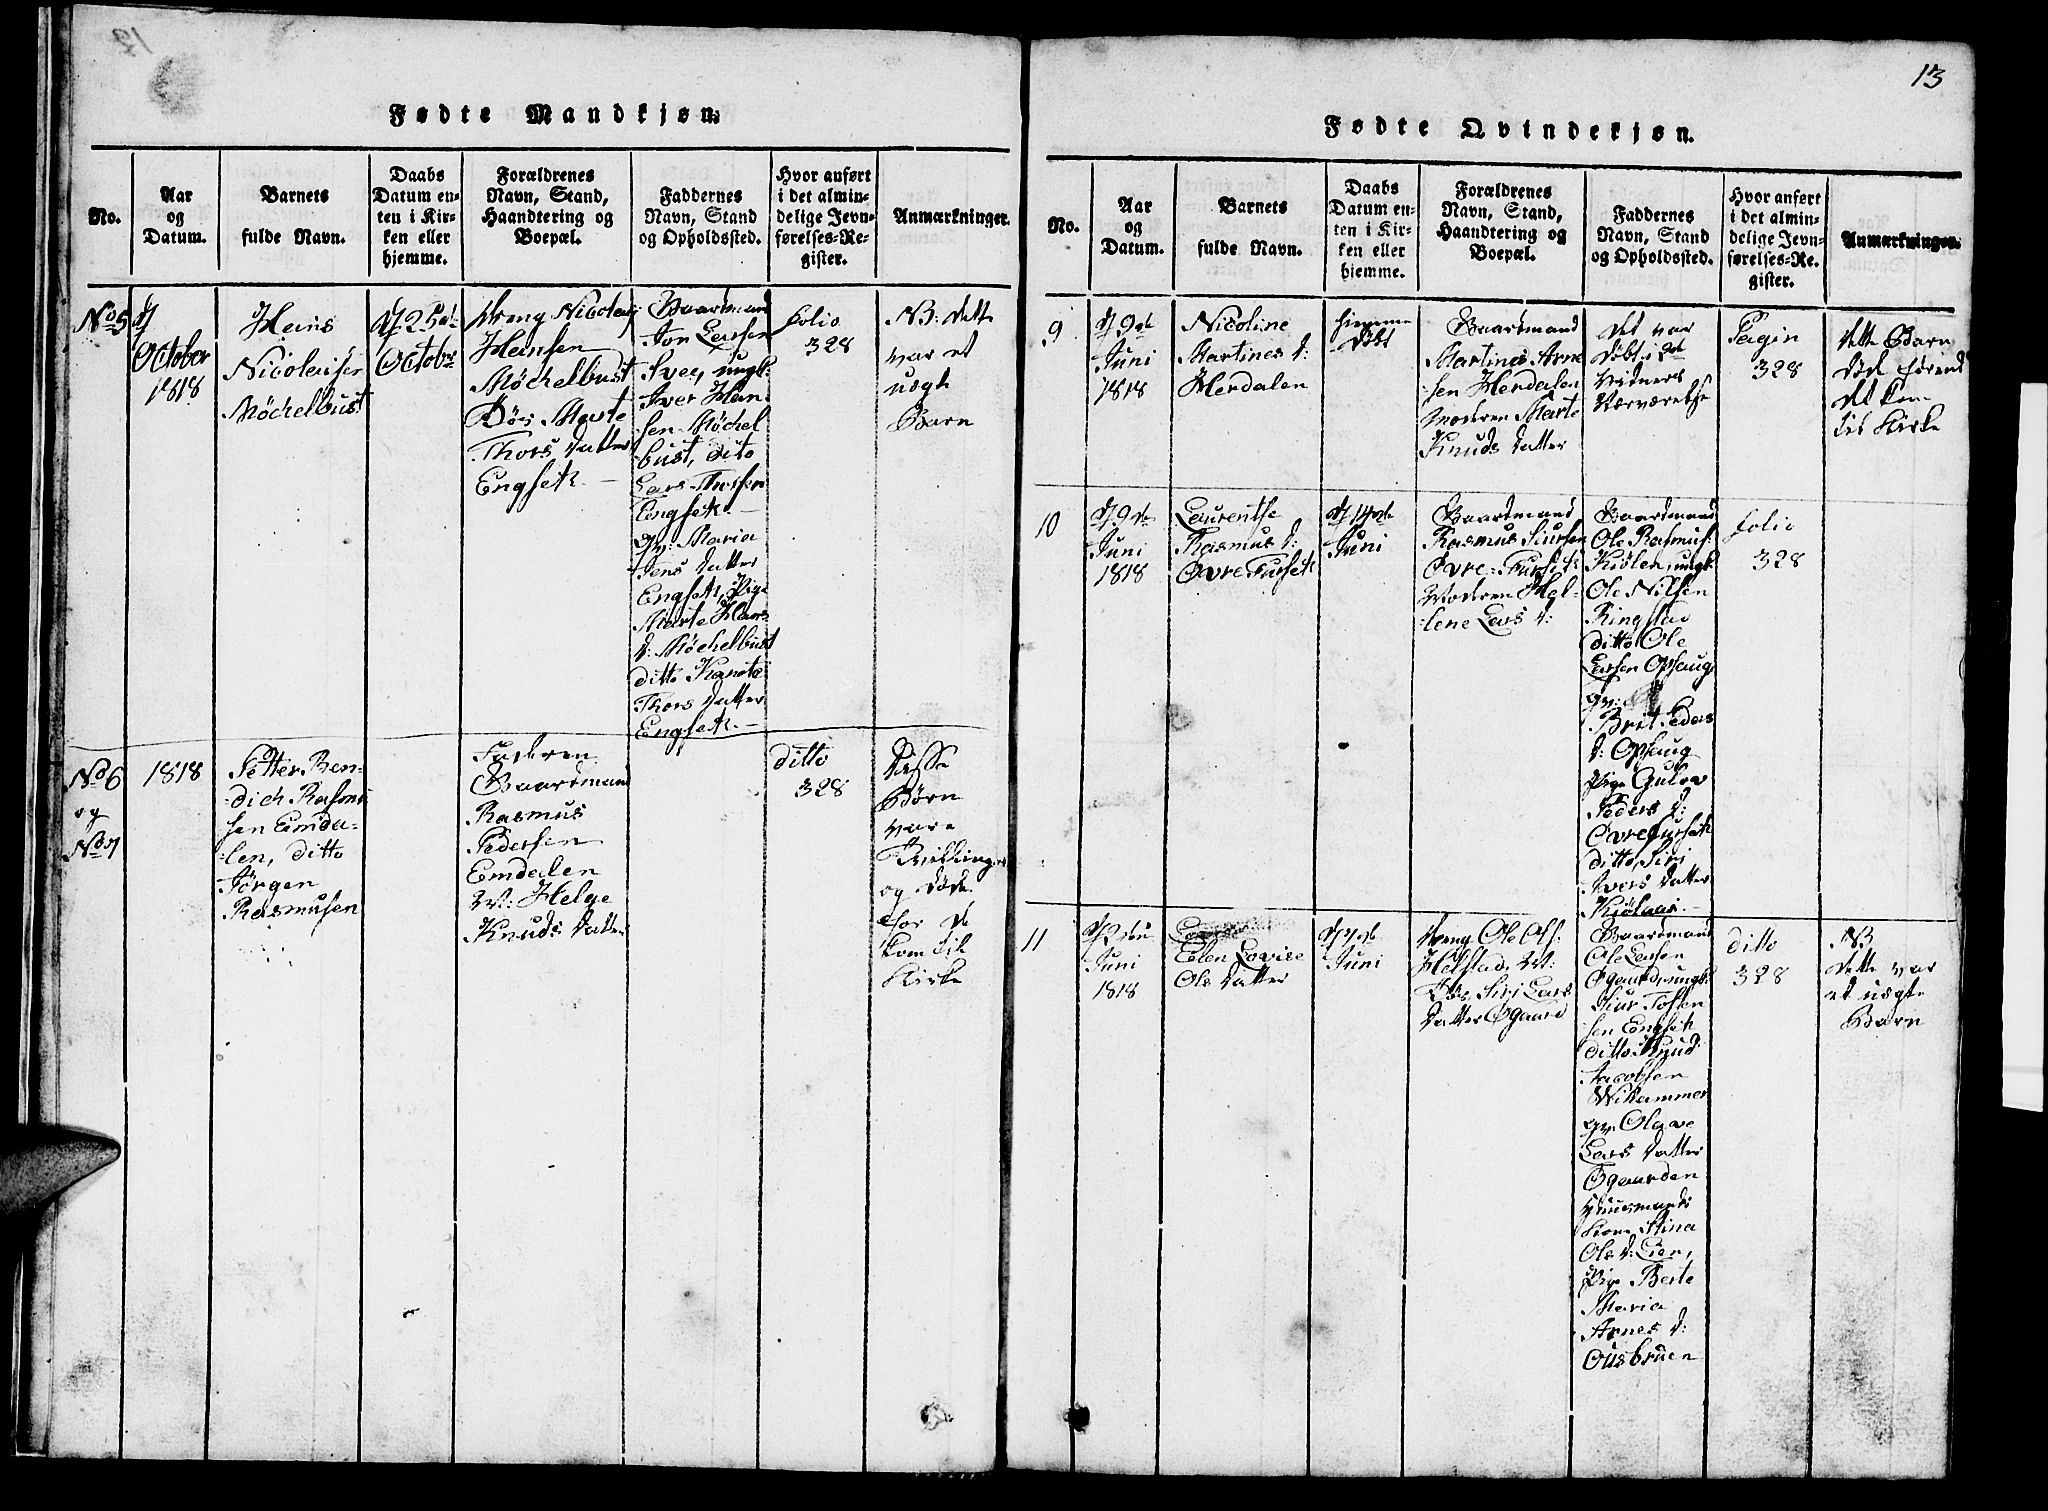 13
Fødte Mandkjøn.
No.
Aar
og
Datum.
Barnets
fulde Navn.
Daabs
Datum en-
ten i Kir-
ken eller
hjemme.
Forældrenes
Navn, Stand,
Haandtering og
Boepæl.
Faddernes
Navn, Stand
og Opholdssted.
Hvor anført
i det almin-
delige Jevn-
førelses-Re-
gister.
Anmærkninger.
No 5
October
1818
Hans
Nicolaisen
Möchelbust
D 25de
October
Dreng Nicolay
Hansen
Möchelbust
Marte
Thors Datter
Engset
Gaardmand
Jon Larsen
Svee, ungk:
Iver Han-
sen Möchel
bust, dito
Lars Thorsen
Engset
gv: Maria
Jens Datter
Engset, Pige
Marte Hans
D: Möchelbust
ditto Kanute
Thors Datter
Engset
folio
328
NB: dette
var et
uægte
Barn
No 6
og
No 7
1818
Petter Ben-
dich Rasmu
sen Emda-
len, ditto
Jörgen
Rasmusen
Faderen
Gaardmand
Rasmus
Pedersen
Emdalen
M: Helge
Knuds Datter
ditto
328
Disse
Børn
vare
Tvillinger
og døde
før de
kom til
Kirke
Fødte Qvindekjøn.
No.
Aar
og
Datum.
Barnets
fulde Navn.
Daabs
Datum en-
ten i Kir-
ken eller
hjemme.
Forældrenes
Navn, Stand,
Haandtering og
Boepæl.
Faddernes
Navn, Stand
og Opholdssted.
Hvor anført
i det almin-
delige Jevn-
førelses-Re-
gister.
Anmærkninger.
9
D 9de
Juni
1818
Nicoline
Martines D:
Herdalen
hiemme
døbt
Gaardmand
Martines Arne
sen Herdalen
Moderen Marte
Knuds Datter
det var
døbt i
Vidners
Nærværelse
Pagin
328
dette Barn
døde førend
det kom
til Kirke
10
D 9de
Juni
1818
Laurentse
Rasmus D:
Øvre Furset
D 14de
Juni
Gaardmand
Rasmus Siursen
Øvre-Furset
Moderen Hel-
lene Lars D:
Gaardmand
Ole Rasmus:
Kiölen, ungk:
Ole Nilsen
Ringstad
ditto Ole
Larsen Opsaug
gv:
Brit Peders
D: Opsaug
Pige Gulov
Peders D:
Øvre Furset
ditto, Siri
Ivers Datter
Kiölaas
folio
328
11
D 2den
Juni
1818
Elen Lovise
Ols Datter
D 7de
Juni
Dreng Ole Ols:
Helstad, M:
Siri Lars
Datter Øgaard
Gaardmand
Ole Larsen
Øgaard, ungk:
Siur Tosten
sen Engset
ditto Knud
Jacobsen
Wikammer
gv: Olave
Lars Datter
Øgaarden
Huusmands
Kone Stina
Ols D: Lien,
Pige Berte
Maria
Arnes D:
Ousbruen
ditto
328
NB
dette var
et uægte
Barn